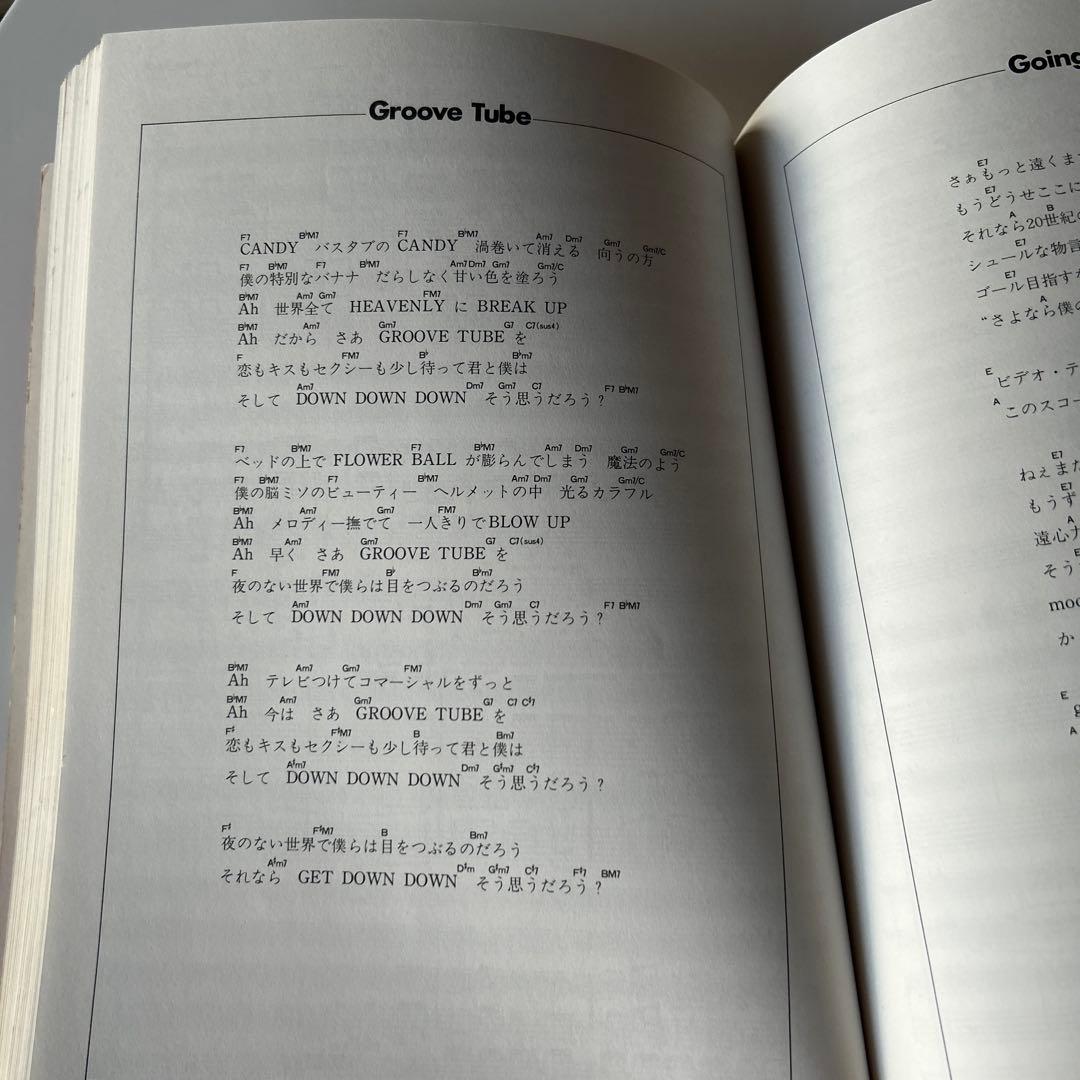 Groove Tube
F7 B♭M7 F7 B♭M7 Am7 Dm7 Gm7 Gm7/C
CANDY バスタブの CANDY 渦巻いて消える 向うの方
F7 B♭M7 F7 B♭M7 Am7 Dm7 Gm7 Gm7/C
僕の特別なバナナ だらしなく甘い色を塗ろう
B♭M7 Am7 Gm7 FM7
Ah 世界全て HEAVENLY に BREAK UP
B♭M7 Am7 Gm7 G7 C7(sus4)
Ah だから さあ GROOVE TUBE を
F FM7 B♭ B♭m7
恋もキスもセクシーも少し待って君と僕は
Am7 Dm7 Gm7 C7 F7 B♭M7
そして DOWN DOWN DOWN そう思うだろう？
F7 B♭M7 F7 B♭M7 Am7 Dm7 Gm7 Gm7/C
ベッドの上で FLOWER BALL が膨らんでしまう 魔法のよう
F7 B♭M7 F7 B♭M7 Am7 Dm7 Gm7 Gm7/C
僕の脳ミソのビューティー ヘルメットの中 光るカラフル
B♭M7 Am7 Gm7 FM7
Ah メロディー撫でて 一人きりで BLOW UP
B♭M7 Am7 Gm7 G7 C7(sus4)
Ah 早く さあ GROOVE TUBE を
F FM7 B♭ B♭m7
夜のない世界で僕らは目をつぶるのだろう
Am7 Dm7 Gm7 C7 F7 B♭M7
そして DOWN DOWN DOWN そう思うだろう？
B♭M7 Am7 Gm7 FM7
Ah テレビつけてコマーシャルをずっと
B♭M7 Am7 Gm7 G7 C7 C♯7
Ah 今は さあ GROOVE TUBE を
F♯ F♯M7 B Bm7
恋もキスもセクシーも少し待って君と僕は
A♯m7 Dm7 G♯m7 C♯7
そして DOWN DOWN DOWN そう思うだろう？
F♯ F♯M7 B Bm7
夜のない世界で僕らは目をつぶるのだろう
A♯m7 D♯m G♯m7 C♯7 F♯7 BM7
それなら GET DOWN DOWN そう思うだろう？
Going
E7
さぁもっと遠くま
E7
もうどうせここに
A B
それなら20世紀の
E7
シュールな物言
E7
ゴール目指すか
A
“さよなら僕の
E
ビデオ・テ
A
このスコー
E7
ねぇまだ
E7
もうず
A
遠心力
E
そう
moo
か
E
g
A